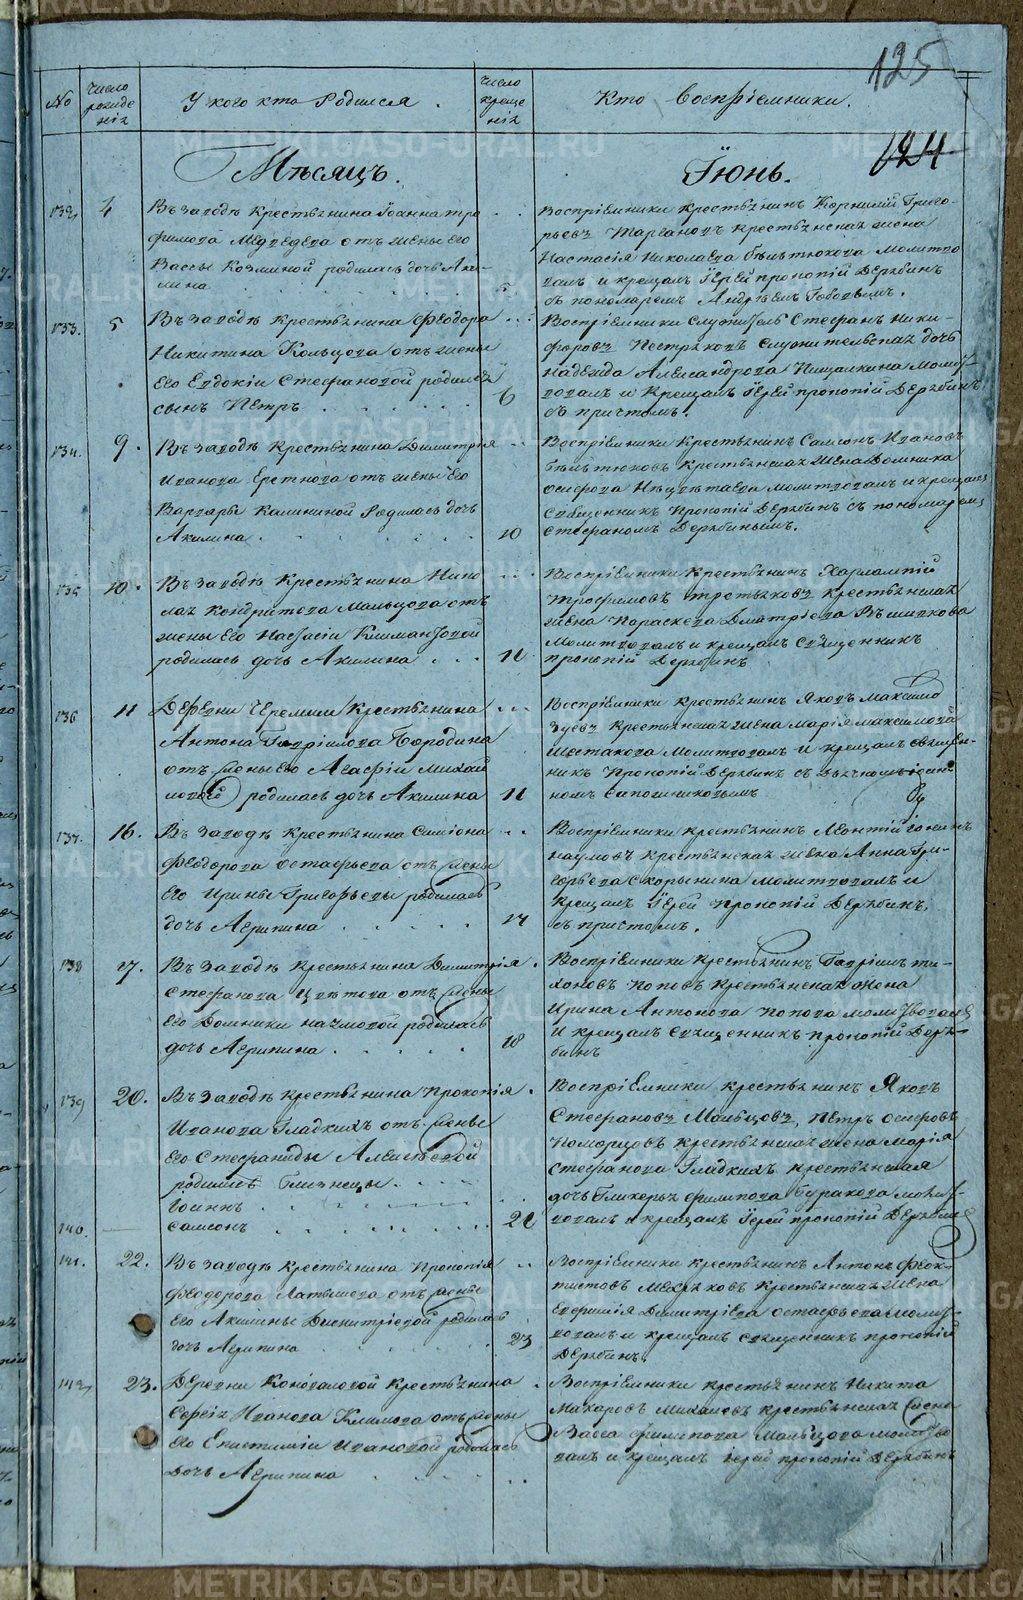 125
124
No
Число рожде нія
У кого кто Родился.
Число креще нія
Кто Воспріемники.
Мѣсяцъ. Іюнь.
132, 4
Въ заводѣ Крестьянина Іоанна тро
фимова Медведева отъ жены его
Вассы Козминой родилась дочь Аки-
лина
5
Воспріемники крестьянинъ Корнилий Григо-
рьевъ крестьянская жена
Настасія Николаева Молитво
валъ и крещалъ Іерей прокопій Дерябинъ
съ пономаремъ Андрѣемъ
133. 5
Въ заводѣ крестьянина Феодора
Никитина Кольцова отъ жены
его Евдокіи Стефановой родился
сынъ Петръ
6
Воспріемники служитель Стефанъ Ники-
форовъ Пестряковъ служительская дочь
надежда Александрова Пищалкина молит-
вовалъ и крещалъ Іерей прокопій Дерябинъ
съ причтомъ.
134. 9.
Въ заводѣ Крестьянина Димитрія
Иванова отъ жены его
Варвары Калининой Родилась дочь
Акилина
10
Воспріемники Крестьянинъ Самсонъ Ивановъ
крестьянская жена Домника
осифова молитвовалъ и крещалъ
Священникъ Прокопій Дерябинъ съ пономаремъ
Стефаномъ Дерябинымъ.
135 10.
Въ заводѣ Крестьянина Нико
лая Кондратова Мальцова отъ
жены его Настасіи
родилась дочь Акилина
11
Воспріемники Крестьянинъ Харлампій
Трофимовъ третьяковъ крестьянская
жена Параскева Дмитріева
Молитвовалъ и крещалъ Священникъ
прокопій Дерябинъ
136 11
Деревни Черемши Крестьянина
Антона Гавріилова Бородина
отъ жены его Агафіи Михай
ловой родилась дочь Акилина
11
Воспріемники крестьянинъ Яковъ Максимо
Зуевъ Крестьянская жена Марія максимова
Шестакова Молитвовалъ и крещалъ священ-
никъ Прокопій Дерябинъ съ дьячкомъ
Сапожниковымъ
137. 16.
Въ заводѣ крестьянина Симіона
Феодорова остафьева отъ жены
Его Ирины Григорьевы родилась
дочь Агрипина
17
Воспріемники крестьянинъ Леонтій
наумовъ крестьянская жена Анна Гри-
горьева Скорынина Молитвовалъ и
Крещалъ Іерей Прокопій Дерябинъ,
съ причтомъ.
138 17.
Въ заводѣ крестьянина Димитрія
Стефанова отъ жены
Его Домники наумовой родилась
дочь Агрипина
18
Воспріемники Крестьянинъ Гавріилъ ти-
хоновъ поповъ Крестьянская жена
Ирина Антонова Попова молитвовалъ
И крещалъ священникъ прокопій Деря-
бинъ
139 20.
Въ заводѣ Крестьянина Прокопія
Иванова Гладкихъ отъ жены
Его Стефаниды Алексѣевой
родились близнецы
Іоаннъ
140. Самсонъ
21
Воспріемники крестьянинъ Яковъ
Стефановъ Мальцовъ, Петръ осифовъ
Поморцовъ крестьянская жена Марія
Стефанова Гладкихъ крестьянская
дочь Гликерья Филипова Буракова молит-
вовалъ и крещалъ Іерей прокопій Дерябинъ
141. 22.
Въ заводѣ крестьянина Прокопія
Феодорова Латышова отъ жены
Его Акилины Димитріевой родилась
дочь Агрипина
23
Воспріемники крестьянинъ Антонъ Феок-
тистовъ крестьянская жена
Евфимія Димитріева остафьева молит-
вовалъ и крещалъ священникъ прокопій
Дерябинъ,
142, 23.
Деревни Коноваловой крестьянина
Сергія Иванова Климова отъ жены
Его Епистиміи Ивановой родилась
дочь Агрипина
Воспріемники крестьянинъ Никита
Макаровъ крестьянская жена
Васса филипова Мальцова молитво
валъ и крещалъ іерей прокопій Дерябинъ
METRIKI.GASO-URAL.RU